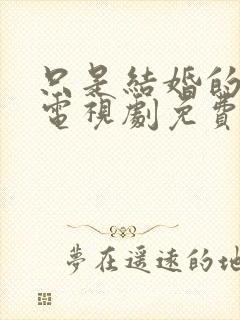 只是結婚的
電視劇免費
夢在遥遠的地